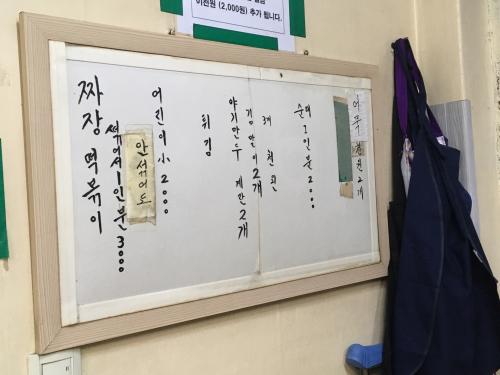 이천원 (2,000원) 추가 됩니다.
짜장 떡볶이
섞어서 1인분 3000
안섞어도
어린이 小 2000
튀김
야기만두 계란 2개
김말이 2개
3개 천원
순대 1인분 2000
어묵 천원 2개